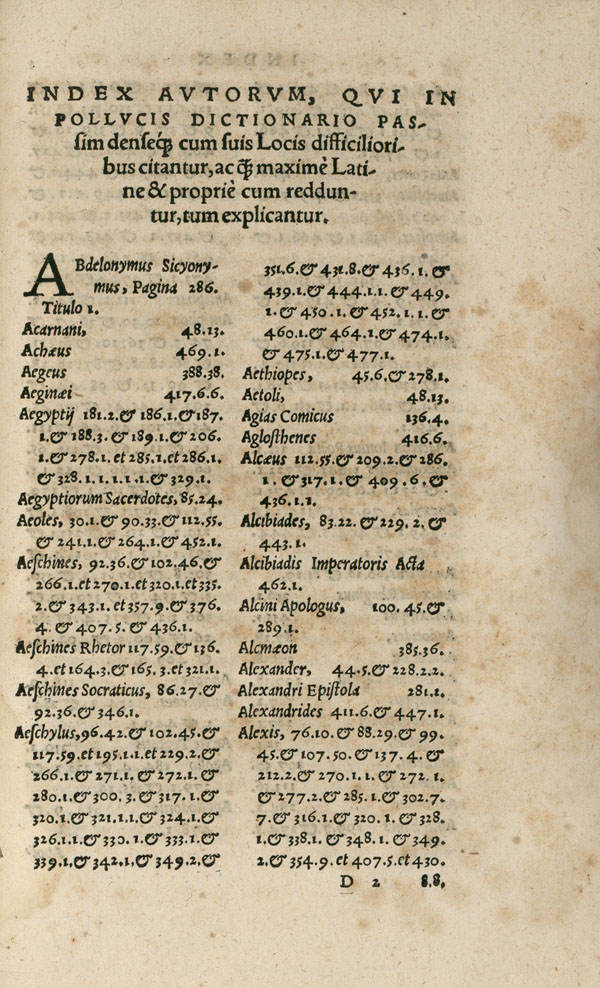 INDEX AVTORVM, QVI IN
POLLVCIS DICTIONARIO PAS-
ſim denſeq́ꝫ cum ſuis Locis difficiliori-
bus citantur, ac q̃ꝫ maximè Lati-
ne & propriè cum reddun-
tur, tum explicantur.
ABdelonymus Sicyony-
mus, Pagina 286.
Titulo 1.
Acarnani, 48.13.
Achæus 469.1.
Aegeus 388.38.
Aeginæi 417.6.6.
Aegyptij 181.2.& 186.1.& 187.
1.& 188.3. & 189.1.& 206.
1.& 278.1. et 285.1.et 286.1.
& 328.1.1.1.1.1.& 329.1.
Aegyptiorum Sacerdotes, 85.24.
Aeoles, 30.1.& 90.33.& 112.55.
& 241.1.& 264.1.& 452.1.
Aeſchines, 92.36.& 102.46.&
266.1.et 270.1.et 320.1.et 335.
2.& 343.1. et 357.9.& 376.
4. & 407.5. & 436.1.
Aeſchines Rhetor 117.59.& 136.
4.et 164.3.& 165.3.et 321.1.
Aeſchines Socraticus, 86.27.&
92.36.& 346.1.
Aeſchylus, 96.42.& 102.45.&
117.59.et 195.1.1.et 229.2.&
266.1.& 271.1. & 272.1. &
280.1.& 300.3.& 317.1.&
320.1.& 321.1.1.& 324.1.&
326.1.1.& 330.1.& 333.1.&
339.1.& 342.1.& 349.2.&
351.6.& 431.8.& 436.1.&
439.1.& 444.1.1.& 449.
1.& 450.1.& 452.1.1.&
460.1.& 464.1.& 474.1.
& 475.1.& 477.1.
Aethiopes, 45.6.& 278.1.
Aetoli, 48.13.
Agias Comicus 136.4.
Agloſthenes 416.6.
Alcæus 112.55.& 209.2.& 286.
1. & 317.1.& 409.6.&
436.1.1.
Alcibiades, 83.22.& 229.2.&
443.1.
Alcibiadis Imperatoris Acta
462.1.
Alcini Apologus, 100.45.&
289.1.
Alcmæon 385.36.
Alexander, 44.5.& 228.2.2.
Alexandri Epiſtola 281.1.
Alexandrides 411.6.& 447.1.
Alexis, 76.10.& 88.29.& 99.
45.& 107.50.& 137.4.&
212.2.& 270.1.1.& 272.1.
& 277.2.& 285.1.& 302.7.
7.& 316.1.& 320.1.& 328.
1.& 338.1.& 348.1.& 349.
2.& 354.9.et 407.5.et 430.
D 2 8.8.